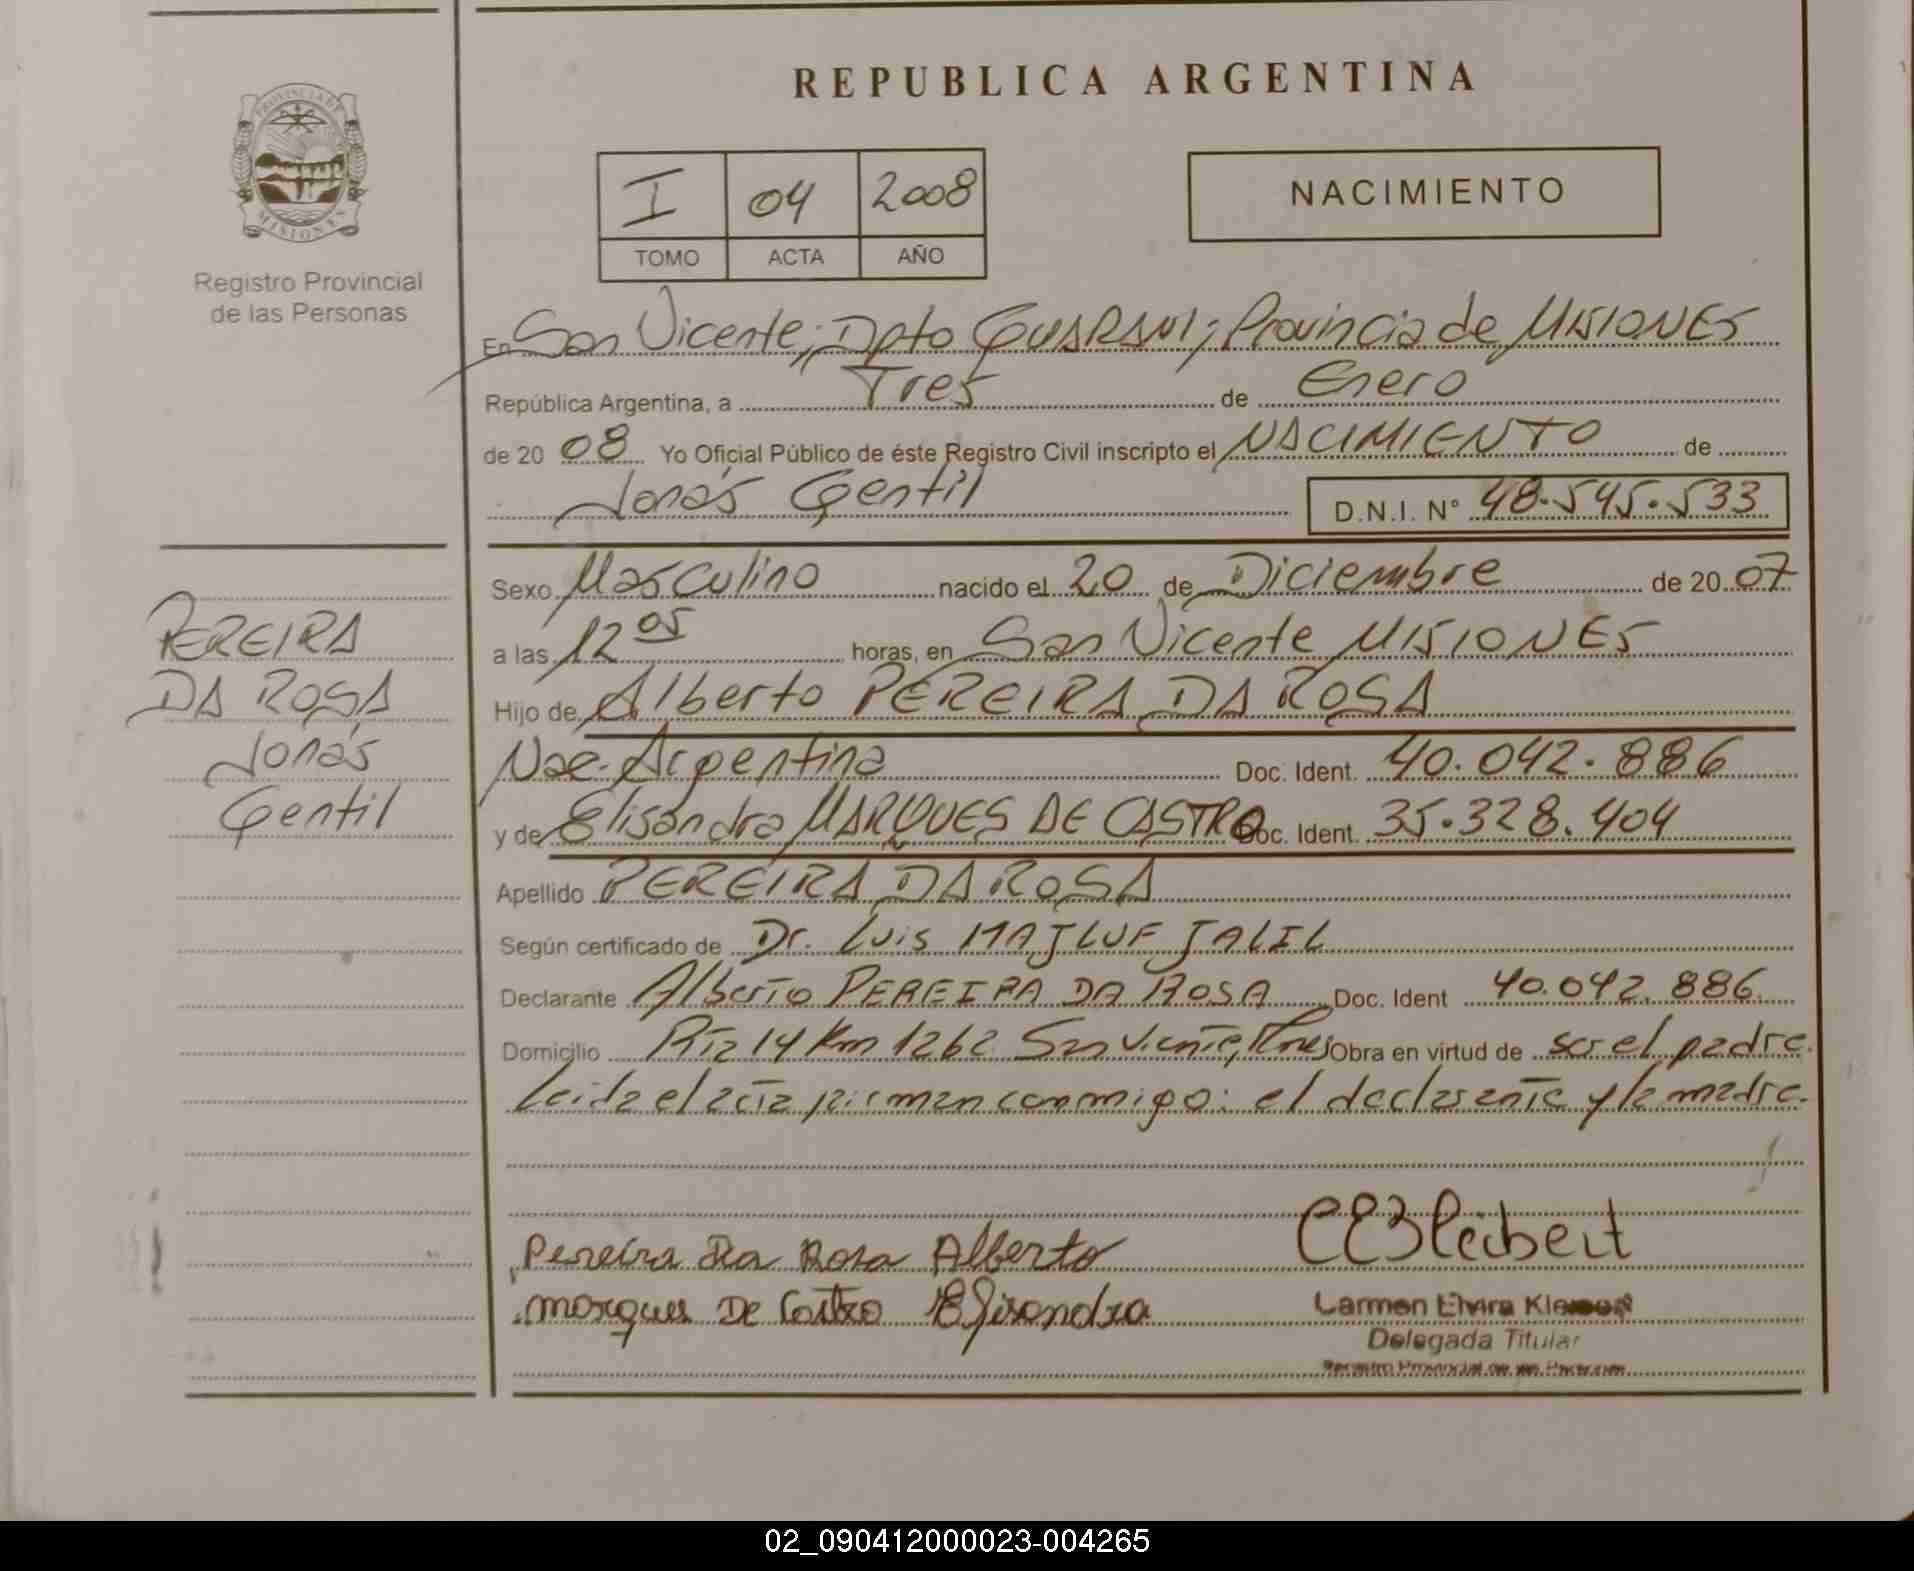 REPUBLICA ARGENTINA
PROVINCIA DE
MISIONES
Registro Provincial
de las Personas
I 04 2008
TOMO ACTA AÑO
NACIMIENTO
En San Vicente; Dpto GUARANI; Provincia de MISIONES
República Argentina, a Tres de Enero
de 20 08 Yo Oficial Público de éste Registro Civil inscripto el NACIMIENTO de
Jonás Gentil D.N.I. N° 48.545.533
PEREIRA
DA ROSA
Jonás
Gentil
Sexo Masculino nacido el 20 de Diciembre de 20 07
a las 12 05 horas, en San Vicente MISIONES
Hijo de Alberto PEREIRA DA ROSA
Nac. Argentina Doc. Ident. 40.042.886
y de Elisandra MARQUES DE CASTRO Doc. Ident. 35.328.404
Apellido PEREIRA DA ROSA
Según certificado de Dr. Luis MAJLUF JALIL
Declarante Alberto PEREIRA DA ROSA Doc. Ident 40.042.886
Domicilio Rta 14 Km 1262 San Vicente, Mnes Obra en virtud de ser el padre.
Leida el acta firman conmigo: el declarante y la madre.
Pereira Da Rosa Alberto
marques De Castro Elisandra
Carmen Elvira
Delegada Titular
Registro Provincial de las Personas
02_090412000023-004265